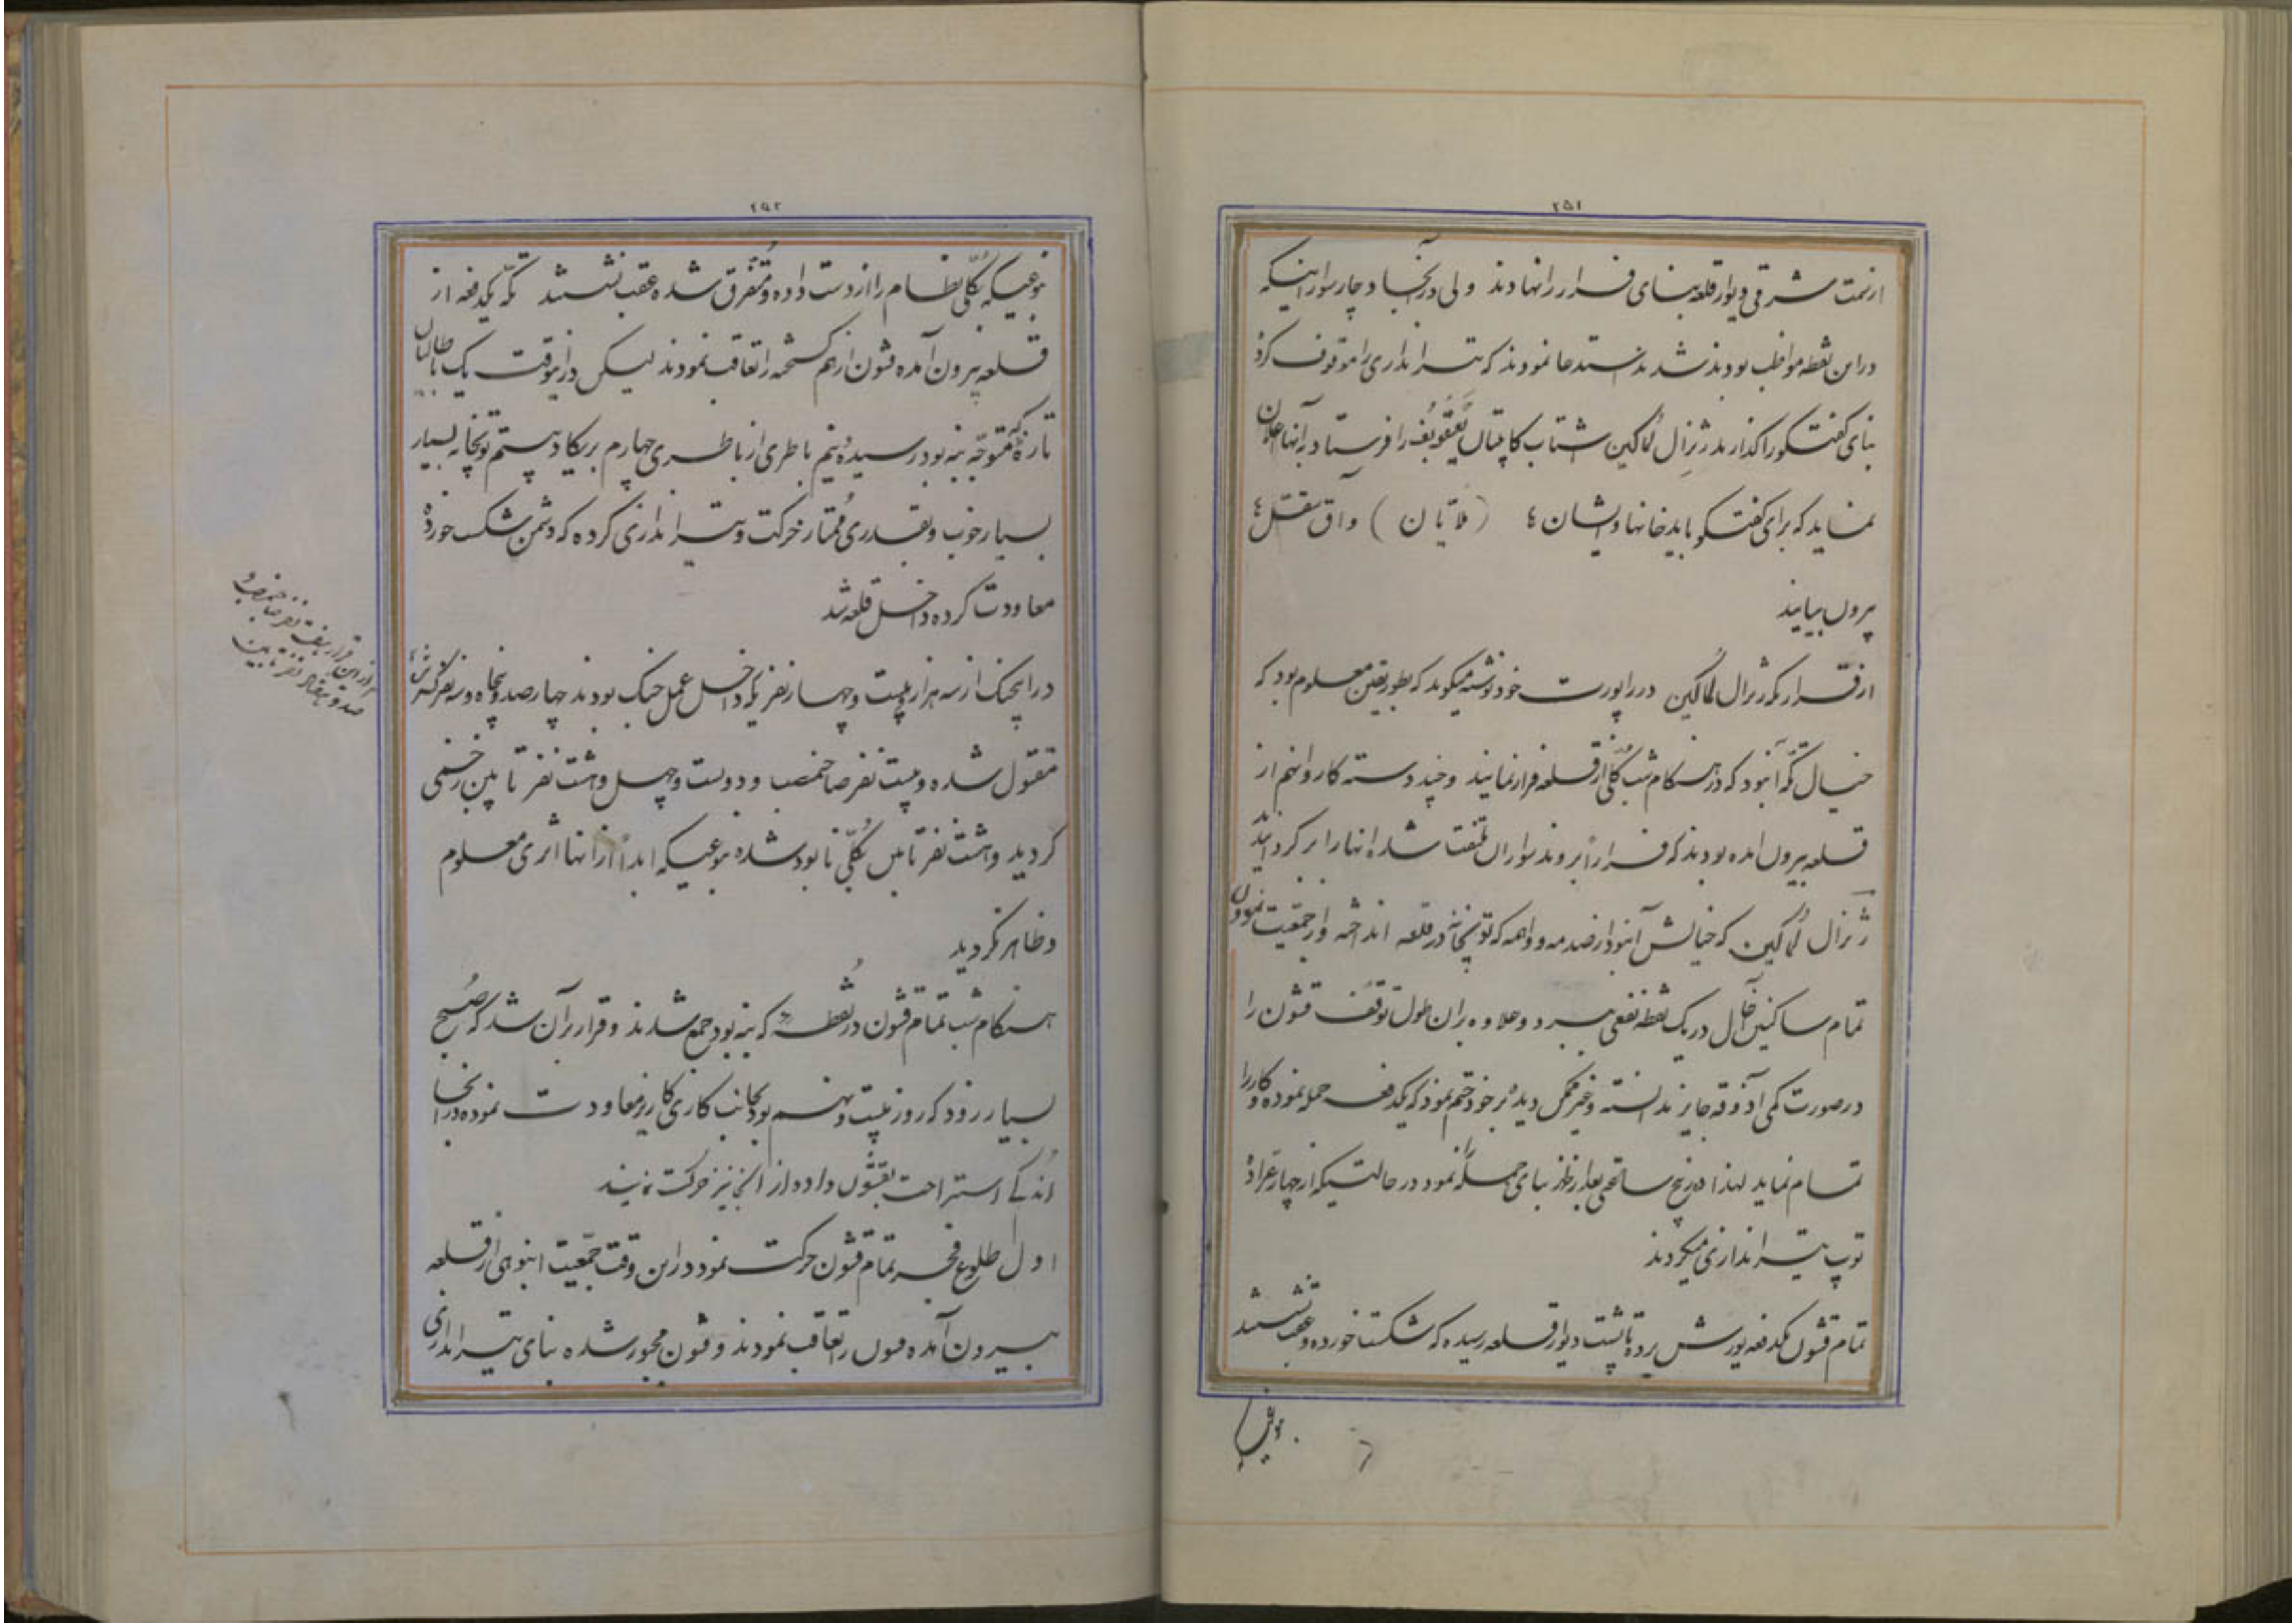 ۲۵۱
از سمت شرقی دیوار قلعه بنای فرار را نهادند ولی در آنجا دچار سوارانیکه
در این نقطه مواظب بودند شدند استدعا نمودند که تیراندازی را موقوف کرده
بنای گفتگو را گذارند ژنرال لُماکین اشتاب کاپیتان یَعقُوبُف را فرستاد به آنها اعلان
نماید که برای گفتگو باید خانها و ایشان؛ (ملایان) و آق سقل؛
بیرون بیایند
از قراریکه ژنرال لُماکین در راپورت خود نوشته میگوید که بطور یقین معلوم بود که
خیال تکّه آن بود که در هنگام شب کُلّی از قلعه فرار نمایند و چند دسته کاروان هم از
قلعه بیرون آمده بودند که فراراً بروند سواران ملتفت شده آنها را برگردانیدند
ژنرال لُماکین که خیالش آن بود از صدمه و واهمه که توپخانه در قلعه انداخته و از جمعیت نمودن
تمام ساکنین آخال در یک نقطه نفعی ببرد و علاوه بر آن طول توقف قشون را
در صورت کمی آذوقه جایز ندانسته و غیر ممکن دیده بر خود حتم نمود که یکدفعه حمله نموده و کار را
تمام نماید لهذا در پنج ساعتی بعد از ظهر بنای حمله نمود در حالتیکه از چهار عرّاده
توپ تیراندازی میکردند
تمام قشون یکدفعه یورش برده تا پشت دیوار قلعه رسیده که شکست خورده و عقب نشستند
بنوعیکه
۲۵۲
بنوعیکه بکُلّی نظام را از دست داده و مُتفرق شده عقب نشستند تکّه یکدفعه از
قلعه بیرون آمده قشون از هم گسیخته را تعاقب نمودند لیکن در اینوقت یک باطالیان
تازۀ که متوجّه بنه بود رسیده و نیم باطری از باطری چهارم بریکاد بیستم توپخانه بسیار
بسیار خوب و بقدری مُمتاز حرکت و تیراندازی کرده که دشمن شکست خورده
معاودت کرده داخل قلعه شد
در این جنگ از سه هزار و بیست و چهار نفریکه داخل عمل جنگ بودند چهارصد و پنجاه و سه نفر کسر شد؛
از این قرار هفت نفر صاحبمنصب و
صد و هفتاد نفر تابین
مقتول شده و بیست نفر صاحبمنصب و دویست و چهل و هشت نفر تابین زخمی
گردید و هشت نفر تابین بکُلّی نابود شده بنوعیکه ابداً از آنها اثری معلوم
و ظاهر نگردید
هنگام شب تمام قشون در نُقطه که بنه بود جمع شدند و قرار بر آن شد که صُبح
بسیار زود که روز بیست و نهم بود بجانب کاری کاریز معاودت نموده در آنجا
اندکی استراحت بقشون داده از آنجا نیز حرکت نمایند
اول طلوع فجر تمام قشون حرکت نمود در این وقت جمّعیت انبوهی از قلعه
بیرون آمده قشون را تعاقب نمودند و قشون مجبور شده بنای تیراندازی